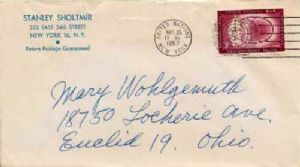 STANLEY SHOLTMIR
322 EAST 34th STREET
NEW YORK 16, N.Y.
Return Postage Guaranteed
UNITED NATIONS
1957
NEW YORK
Mary Wohlgemuth
18750 Locherie Ave.
Euclid 19. Ohio.